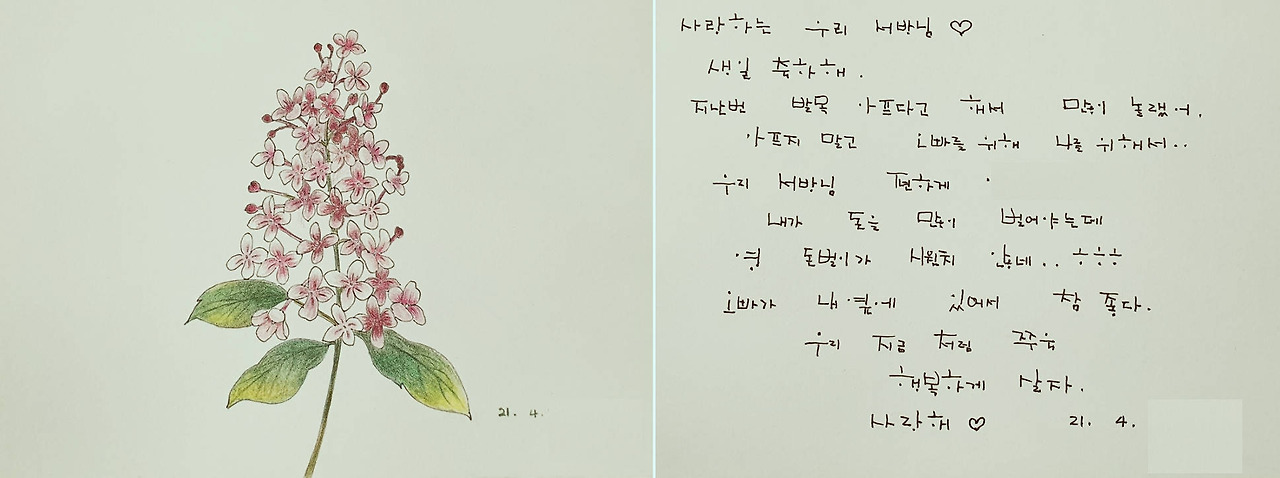 21. 4.
사랑하는 우리 서방님 ♡
생일 축하해.
지난번 발목 아프다고 해서 많이 놀랬어.
아프지 말고 오빠를 위해 나를 위해서..
우리 서방님 편하게
내가 돈을 많이 벌어야는데
영 돈벌이가 시원치 않네.. ㅎㅎㅎ
오빠가 내 옆에 있어서 참 좋다.
우리 지금 처럼 쭈욱
행복하게 살자.
사랑해 ♡ 21. 4.